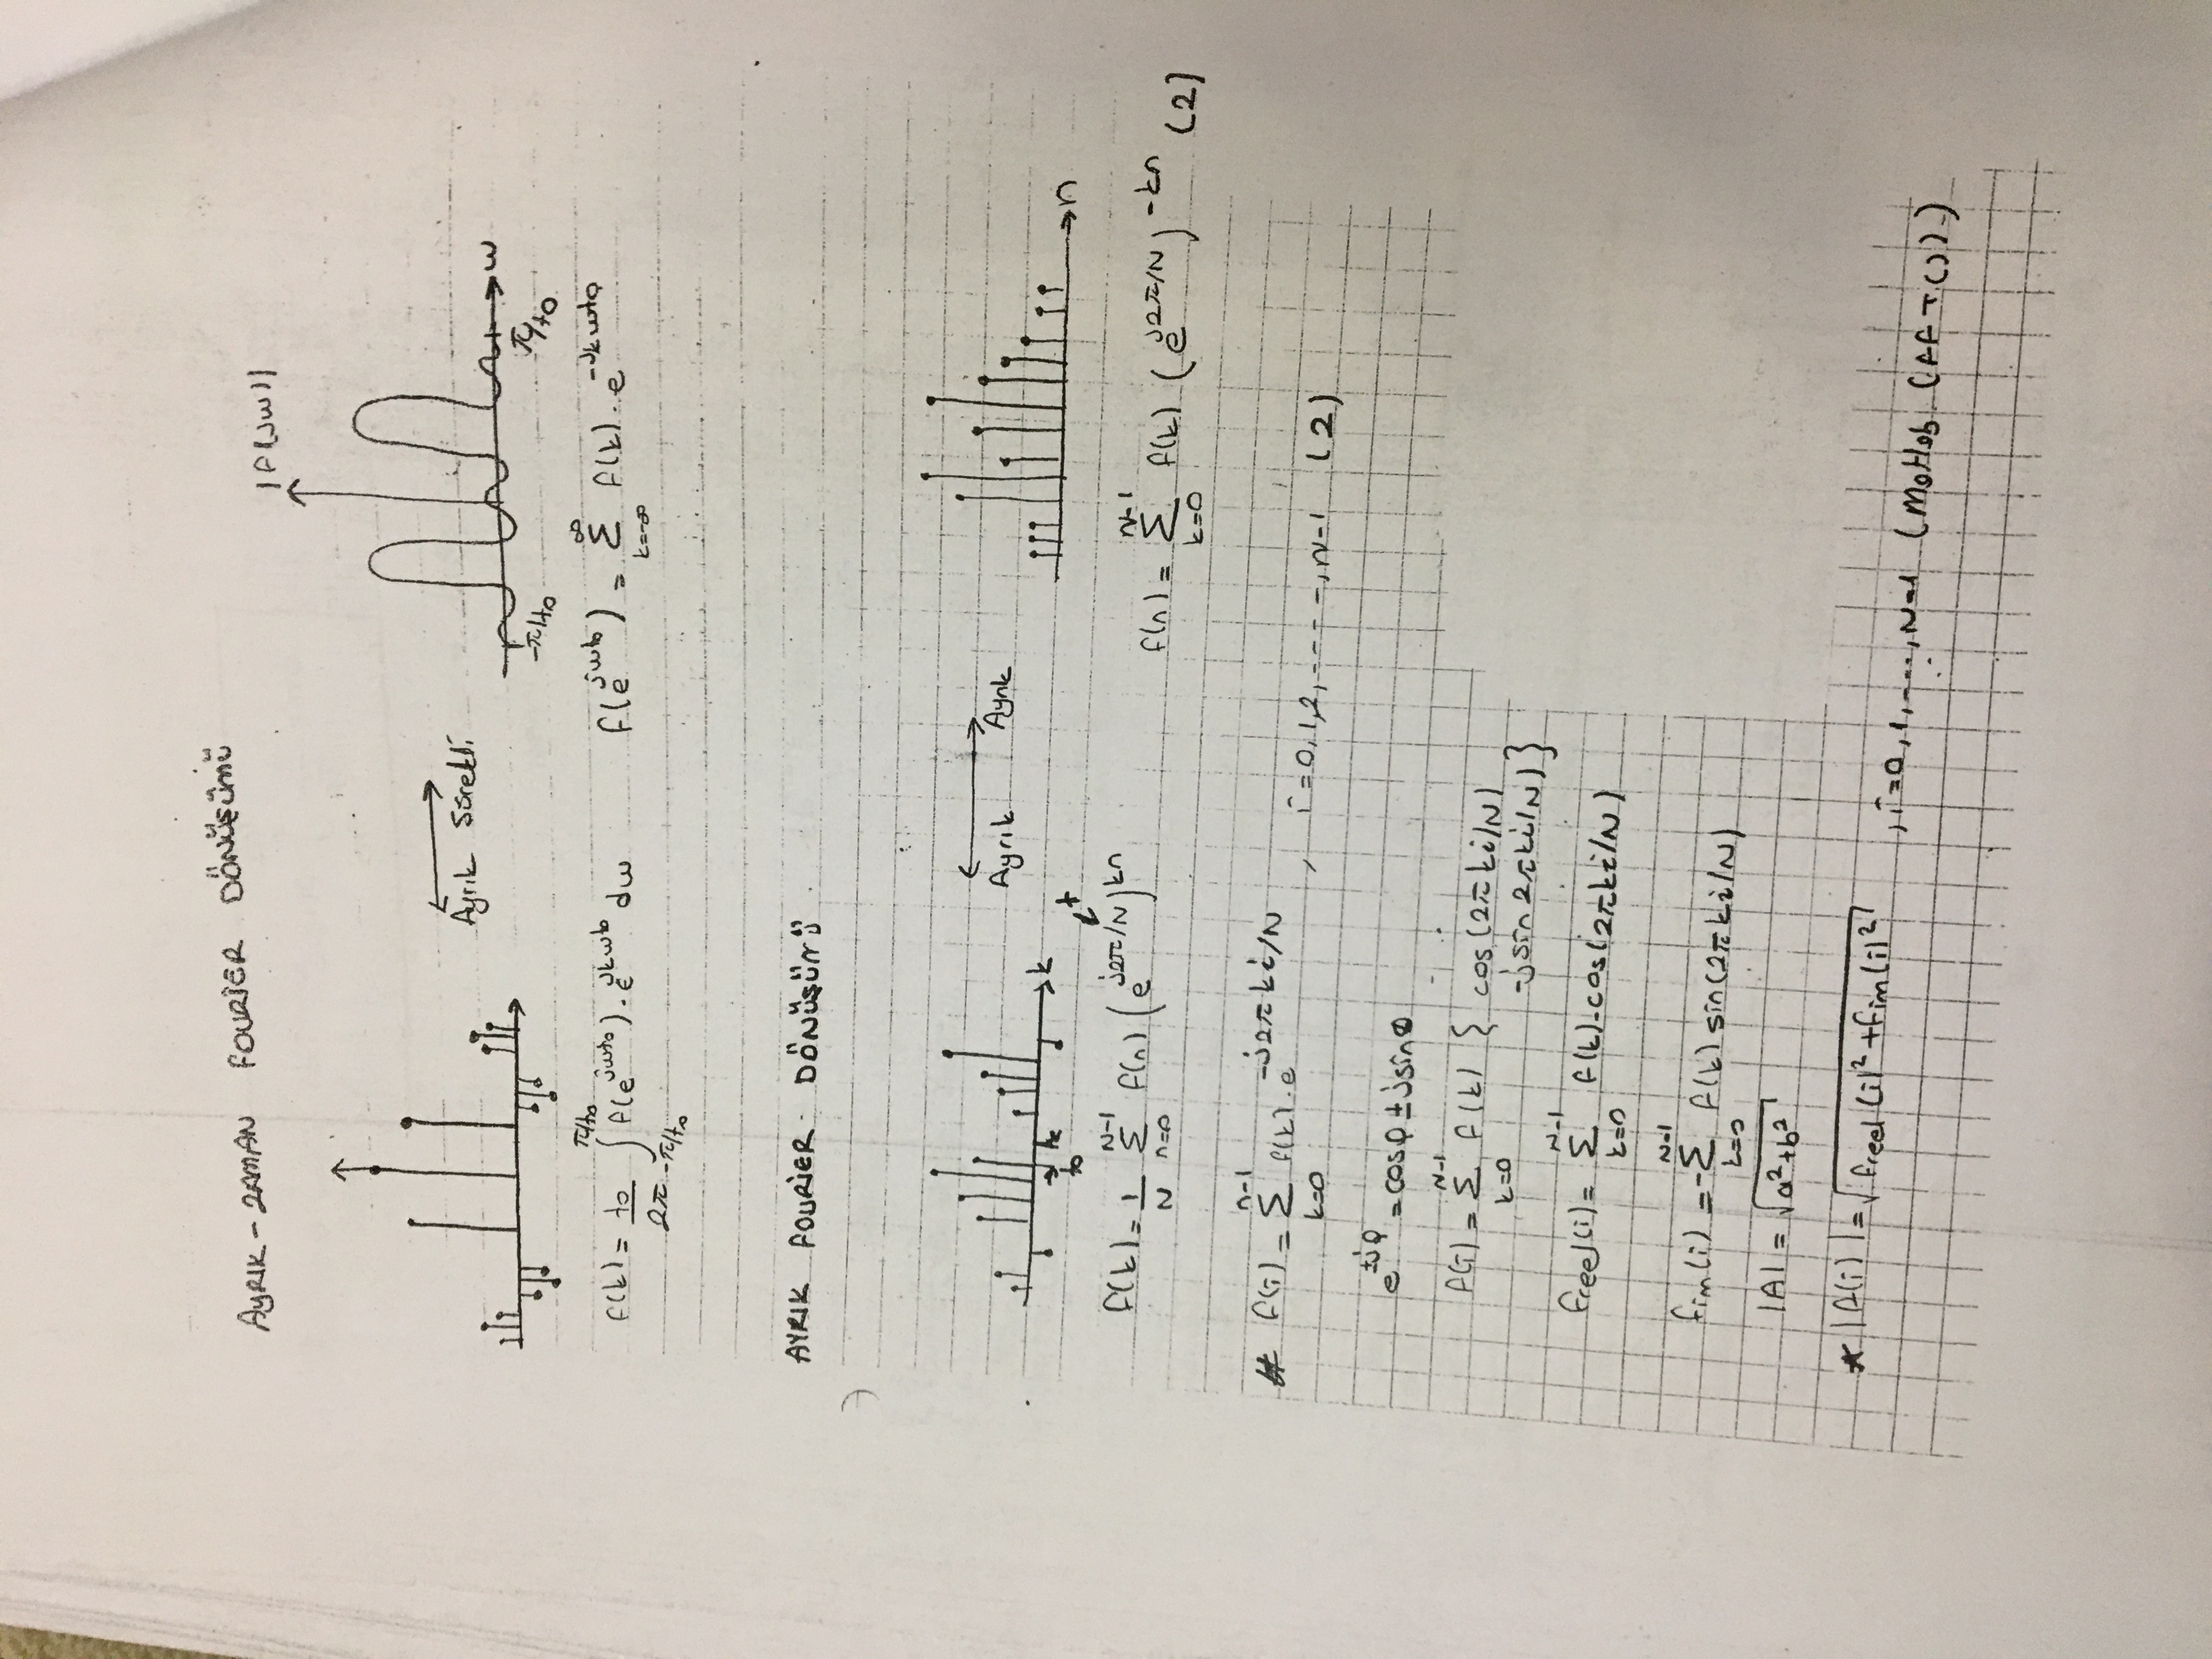 AYRIK-ZAMAN FOURİER DÖNÜŞÜMÜ
|F(jw)|
Ayrık Sürekli
w
-π/to
π/to
f(k) = to/2π ∫_{-π/to}^{π/to} f(e^{jwto}) . e^{jkwto} dw
f(e^{jwto}) = Σ_{k=-∞}^{∞} f(k) . e^{-jkwto}
AYRIK FOURİER DÖNÜŞÜMÜ
Ayrık Ayrık
k
to
n
f(k) = 1/N Σ_{n=0}^{N-1} f(n) (e^{j2π/N})^{kn}
f(n) = Σ_{k=0}^{N-1} f(k) (e^{j2π/N})^{-kn} (2)
# f(i) = Σ_{k=0}^{n-1} f(k) . e^{-j2πki/N} , i=0,1,2,-----,N-1 (2)
e^{±jϕ} = cosϕ ± jsinϕ
f(i) = Σ_{k=0}^{N-1} f(k) { cos(2πki/N)
-jsin2πki/N) }
freel(i) = Σ_{k=0}^{N-1} f(k).cos(2πki/N)
fim(i) = -Σ_{k=0}^{N-1} f(k) sin(2πki/N)
|A| = √(a²+b²)
* |f(i)| = √(freel(i)² + fim(i)²) , i=0,1,----,N-1 (Matlab (FFT()))